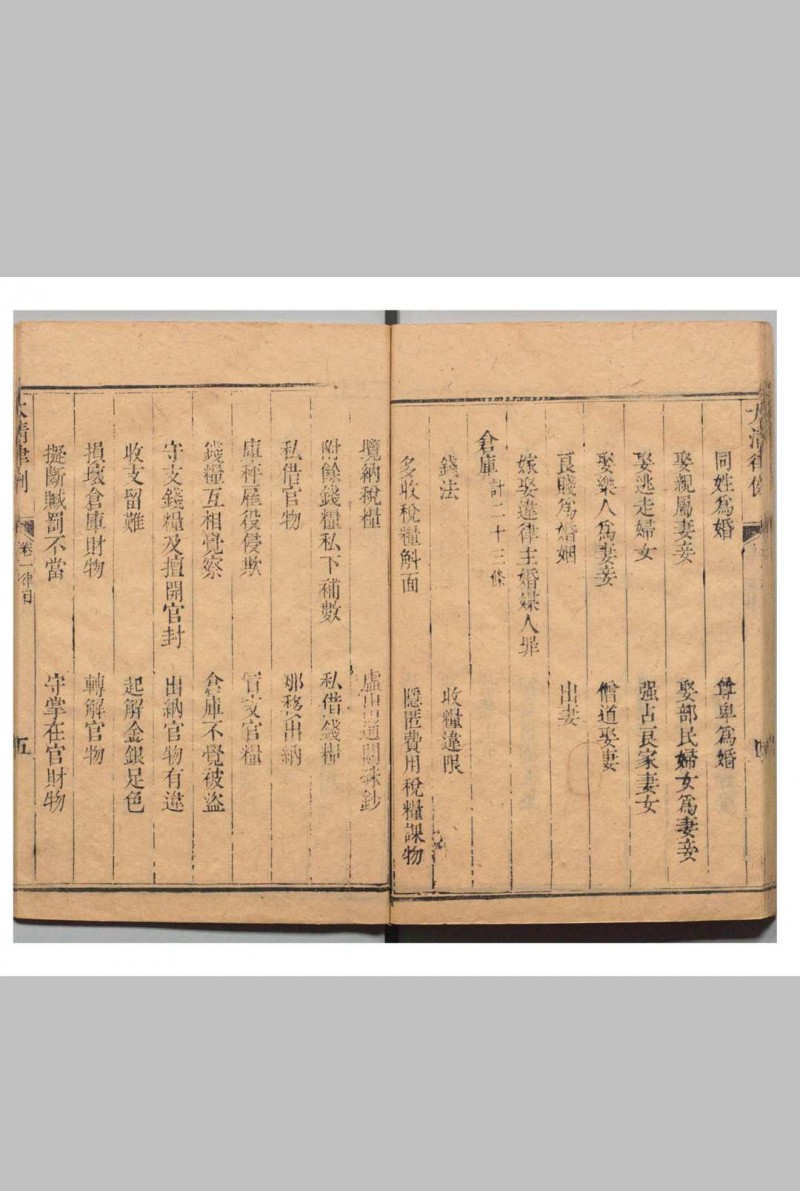 大清律例
同姓為婚 尊卑為婚
娶親屬妻妾 娶部民婦女為妻妾
娶逃走婦女 强占良家妻女
娶樂人為妻妾 僧道娶妻
良賤為婚姻 出妻
嫁娶違律主婚媒人罪
倉庫計二十三條
錢法 收糧違限
多收稅糧斛面 隱匿費用稅糧課物
攬納稅糧 虛出通關硃鈔
附餘錢糧私下補數 私借錢糧
私借官物 那移出納
庫秤雇役侵欺 冒支官糧
錢糧互相覺察 倉庫不覺被盜
守支錢糧及擅開官封 出納官物有違
收支留難 起解金銀足色
損壞倉庫財物 轉解官物
擬斷贓罰不當 守掌在官財物
大清律例 卷一律目 五